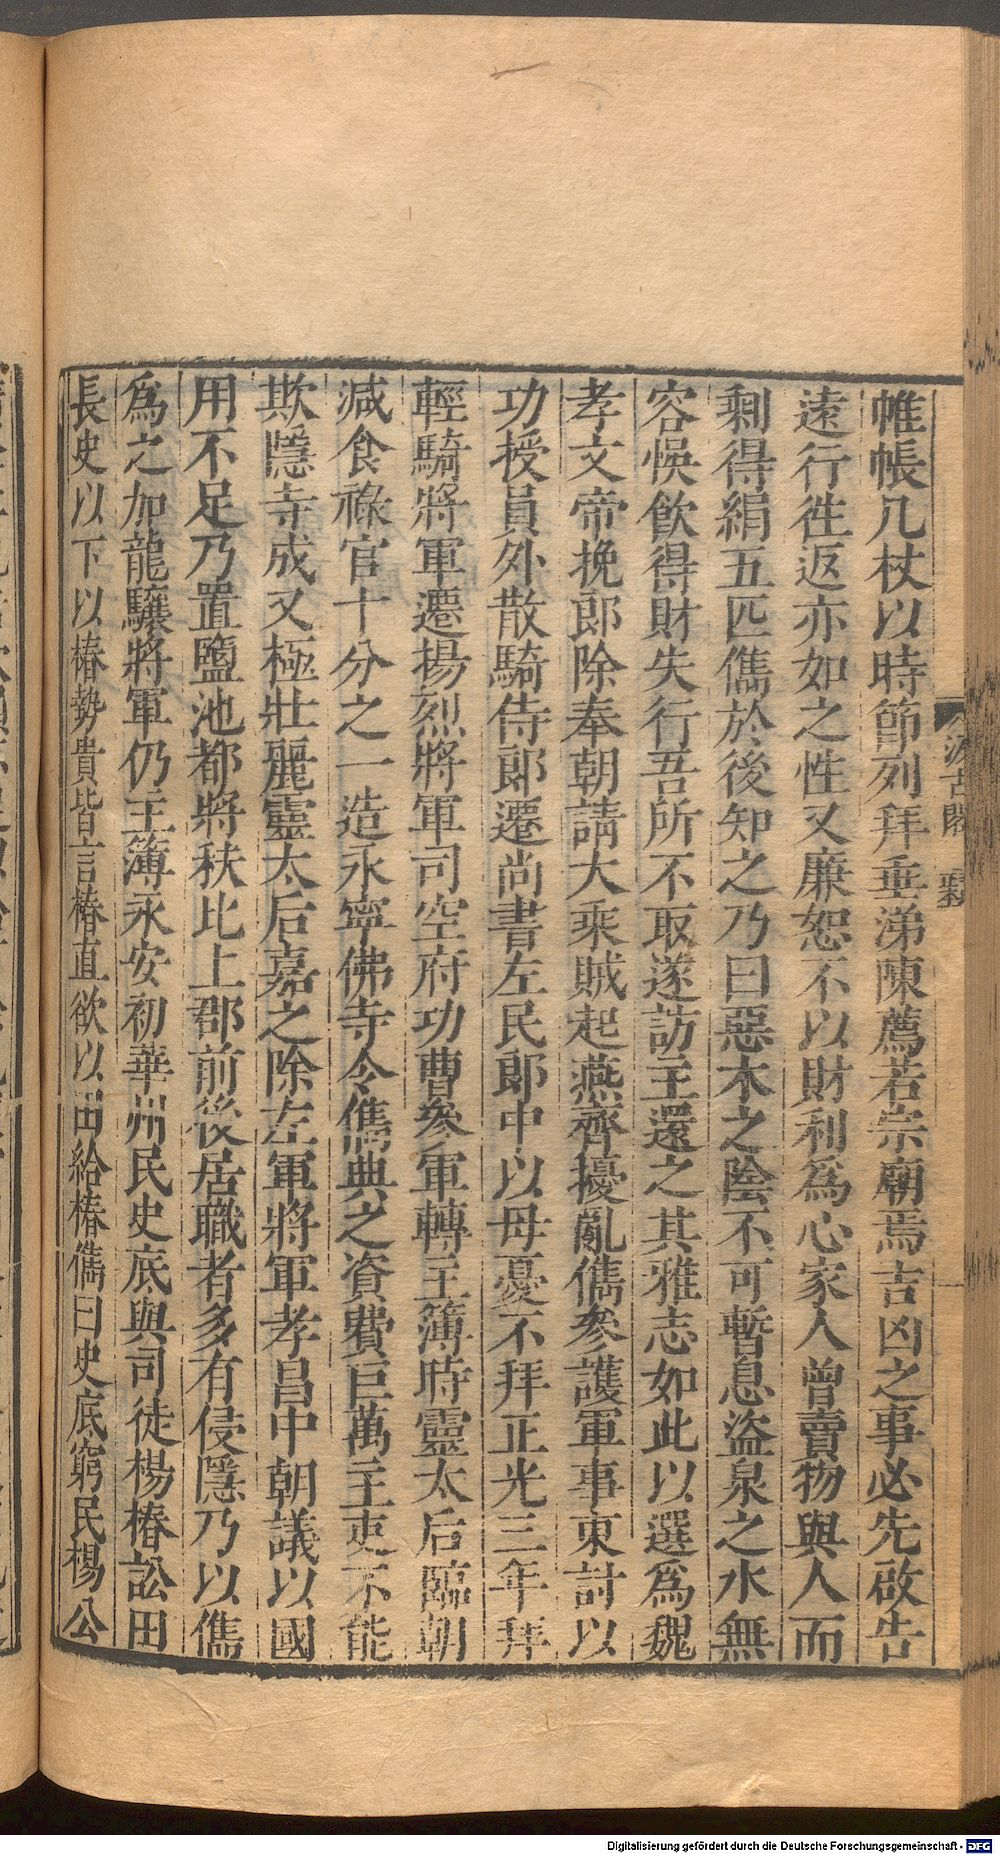 帷帳几杖以時節列拜垂涕陳薦若宗廟焉吉凶之事必先啟告
遠行徃返亦如之性又廉恕不以財利爲心家人曾賣物與人而
剩得絹五匹儁於後知之乃曰惡木之陰不可暫息盜泉之水無
容悞飲得財失行吾所不取遂訪主還之其雅志如此以選爲魏
孝文帝挽郎除奉朝請大乘賊起燕齊擾亂儁參護軍事東討以
功授員外散騎侍郎遷尚書左民郎中以母憂不拜正光三年拜
輕騎將軍遷揚烈將軍司空府功曹參軍轉主簿時靈太后臨朝
減食祿官十分之一造永寧佛寺令儁典之資費巨萬主吏不能
欺隱寺成又極壯麗靈太后嘉之除左軍將軍孝昌中朝議以國
用不足乃置鹽池都將秩比上郡前後居職者多有侵隱乃以儁
爲之加龍驤將軍仍主簿永安初華州民史底與司徒楊椿訟田
長史以下以椿勢貴皆言椿直欲以田給椿儁曰史底窮民楊公
汲古閣
Digitalisierung gefördert durch die Deutsche Forschungsgemeinschaft - DFG